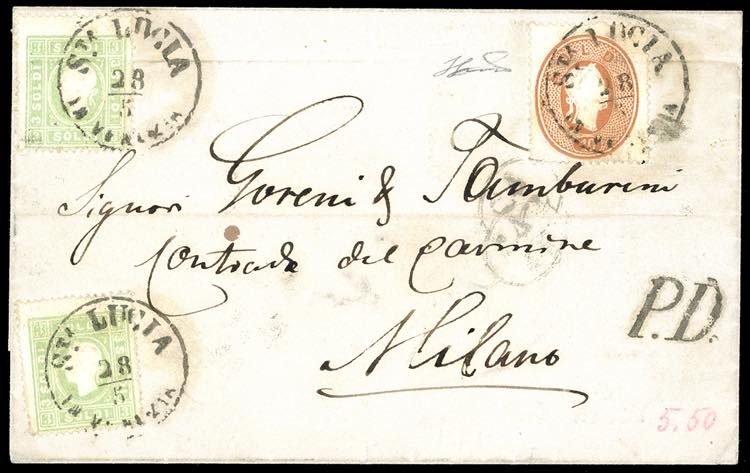 STA. LUCIA
28
5
3 SOLDI
SOLDI
STA. LUCIA
Signori Goreni & Tamburini
Contrada del Carmine
Milano
P.D.
STA. LUCIA
28
5
5.50